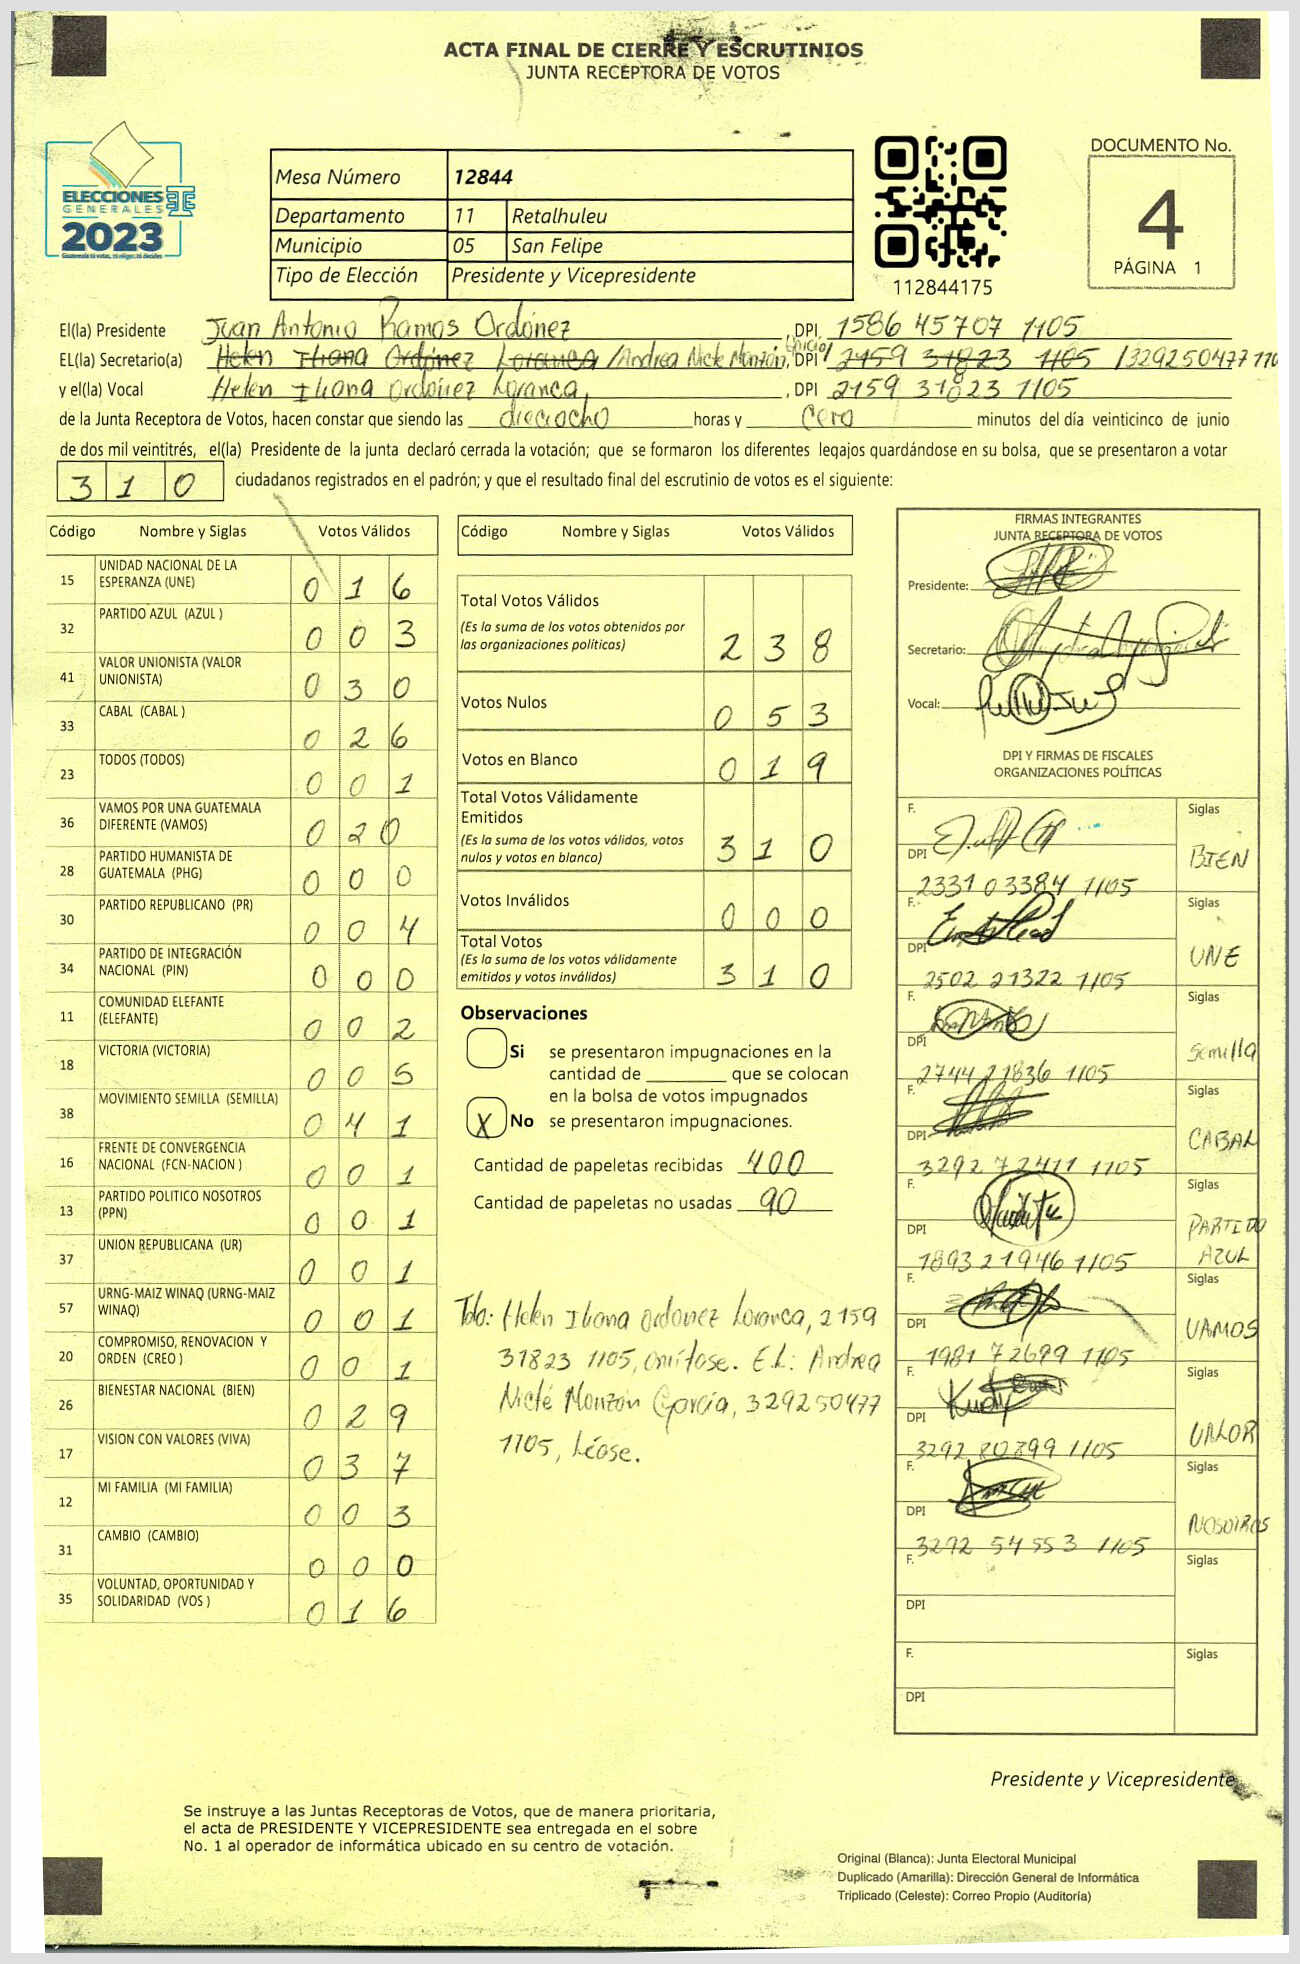 ACTA FINAL DE CIERRE Y ESCRUTINIOS
JUNTA RECEPTORA DE VOTOS
ELECCIONES
GENERALES
2023
Mesa Número 12844
Departamento 11 Retalhuleu
Municipio 05 San Felipe
Tipo de Elección Presidente y Vicepresidente
112844175
DOCUMENTO No.
4
PÁGINA 1
El(la) Presidente Juan Antonio Ramos Ordónez , DPI 1586 45707 1105
EL(la) Secretario(a) Helen Iliana Ordónez Loranca /Andrea Nicte Monzón , DPI 2159 31823 1105 /329250477 110
y el(la) Vocal Helen Iliana Ordónez Loranca , DPI 2159 31823 1105
de la Junta Receptora de Votos, hacen constar que siendo las dieciocho horas y cero minutos del día veinticinco de junio
de dos mil veintitrés, el(la) Presidente de la junta declaró cerrada la votación; que se formaron los diferentes legajos guardándose en su bolsa, que se presentaron a votar
3 1 0 ciudadanos registrados en el padrón; y que el resultado final del escrutinio de votos es el siguiente:
Código Nombre y Siglas Votos Válidos
15 UNIDAD NACIONAL DE LA
ESPERANZA (UNE) 0 1 6
32 PARTIDO AZUL (AZUL ) 0 0 3
41 VALOR UNIONISTA (VALOR
UNIONISTA) 0 3 0
33 CABAL (CABAL ) 0 2 6
23 TODOS (TODOS) 0 0 1
36 VAMOS POR UNA GUATEMALA
DIFERENTE (VAMOS) 0 2 0
28 PARTIDO HUMANISTA DE
GUATEMALA (PHG) 0 0 0
30 PARTIDO REPUBLICANO (PR) 0 0 4
34 PARTIDO DE INTEGRACIÓN
NACIONAL (PIN) 0 0 0
11 COMUNIDAD ELEFANTE
(ELEFANTE) 0 0 2
18 VICTORIA (VICTORIA) 0 0 5
38 MOVIMIENTO SEMILLA (SEMILLA) 0 4 1
16 FRENTE DE CONVERGENCIA
NACIONAL (FCN-NACION ) 0 0 1
13 PARTIDO POLITICO NOSOTROS
(PPN) 0 0 1
37 UNION REPUBLICANA (UR) 0 0 1
57 URNG-MAIZ WINAQ (URNG-MAIZ
WINAQ) 0 0 1
20 COMPROMISO, RENOVACION Y
ORDEN (CREO ) 0 0 1
26 BIENESTAR NACIONAL (BIEN) 0 2 9
17 VISION CON VALORES (VIVA) 0 3 7
12 MI FAMILIA (MI FAMILIA) 0 0 3
31 CAMBIO (CAMBIO) 0 0 0
35 VOLUNTAD, OPORTUNIDAD Y
SOLIDARIDAD (VOS ) 0 1 6
Código Nombre y Siglas Votos Válidos
Total Votos Válidos
(Es la suma de los votos obtenidos por
las organizaciones políticas) 2 3 8
Votos Nulos 0 5 3
Votos en Blanco 0 1 9
Total Votos Válidamente
Emitidos
(Es la suma de los votos válidos, votos
nulos y votos en blanco) 3 1 0
Votos Inválidos 0 0 0
Total Votos
(Es la suma de los votos válidamente
emitidos y votos inválidos) 3 1 0
Observaciones
Si se presentaron impugnaciones en la
cantidad de ________ que se colocan
en la bolsa de votos impugnados
X No se presentaron impugnaciones.
Cantidad de papeletas recibidas 400
Cantidad de papeletas no usadas 90
Helen Iliana Ordonez Loranca, 2159
31823 1105, omítase. E.L: Andrea
Nicté Monzón García, 329250477
1105, Léase.
FIRMAS INTEGRANTES
JUNTA RECEPTORA DE VOTOS
Presidente:
Secretario:
Vocal:
DPI Y FIRMAS DE FISCALES
ORGANIZACIONES POLÍTICAS
F. Siglas
DPI 2331 03384 1105 BIEN
F. Siglas
DPI 2502 21322 1105 UNE
F. Siglas
DPI 2744 21836 1105 Semilla
F. Siglas
DPI 3292 72411 1105 CABAL
F. Siglas
DPI 1893 21946 1105 PARTIDO AZUL
F. Siglas
DPI 1981 72699 1105 VAMOS
F. Siglas
DPI 3292 80899 1105 VALOR
F. Siglas
DPI 3292 54553 1105 NOSOTROS
F. Siglas
DPI
F. Siglas
DPI
Presidente y Vicepresidente
Se instruye a las Juntas Receptoras de Votos, que de manera prioritaria,
el acta de PRESIDENTE Y VICEPRESIDENTE sea entregada en el sobre
No. 1 al operador de informática ubicado en su centro de votación.
Original (Blanca): Junta Electoral Municipal
Duplicado (Amarilla): Dirección General de Informática
Triplicado (Celeste): Correo Propio (Auditoría)